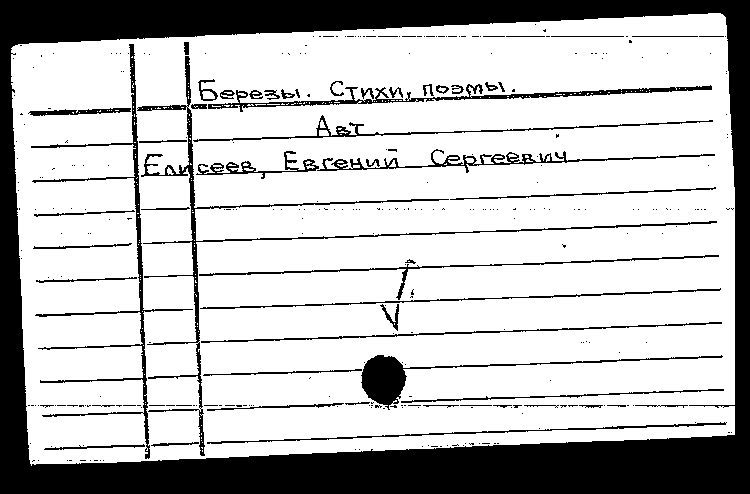 Березы. Стихи, поэмы.
Авт.
Елисеев, Евгений Сергеевич